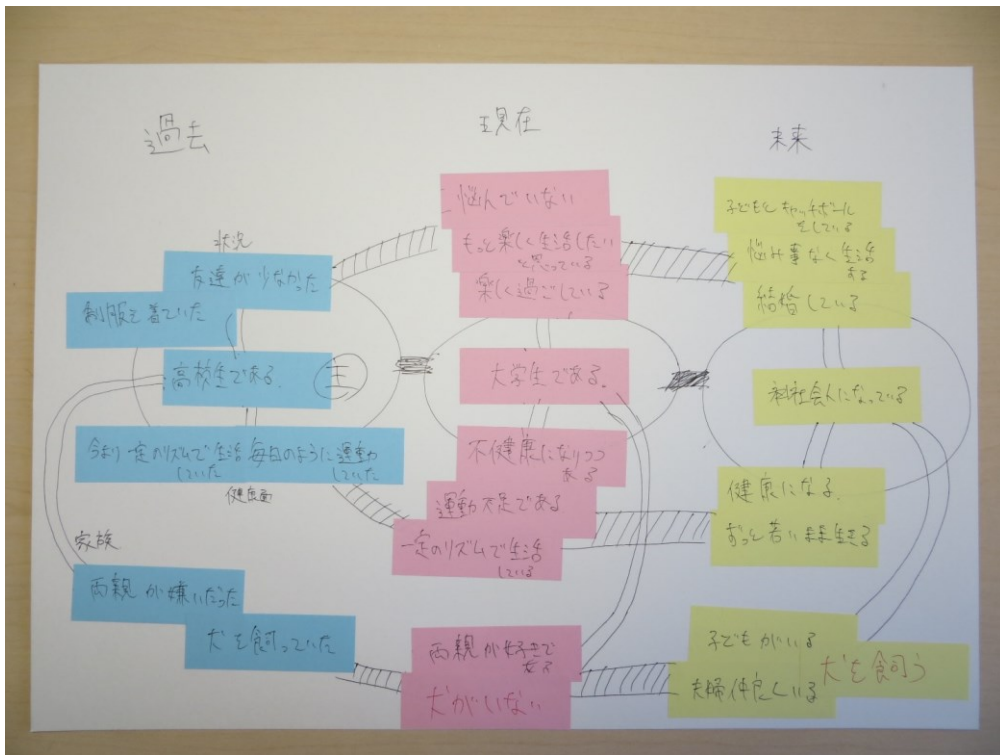 過去
現在
未来
状況
友達が少なかった
制服を着ていた
高校生である。
王
今より一定のリズムで生活
していた
毎日のように運動
していた
健康面
家族
両親が嫌いだった
犬を飼っていた
悩んでいない
もっと楽しく生活したい
と思っている
楽しく過ごしている
大学生である。
不健康になりつつ
ある
運動不足である
一定のリズムで生活
している
両親が好きで
ある
犬がいない
子どもとキャッチボール
をしている
悩み事なく生活
ある
結婚している
社会人になっている
健康になる。
ずっと若い
生きる
子どもがいる
夫婦仲良くいる
犬を飼う